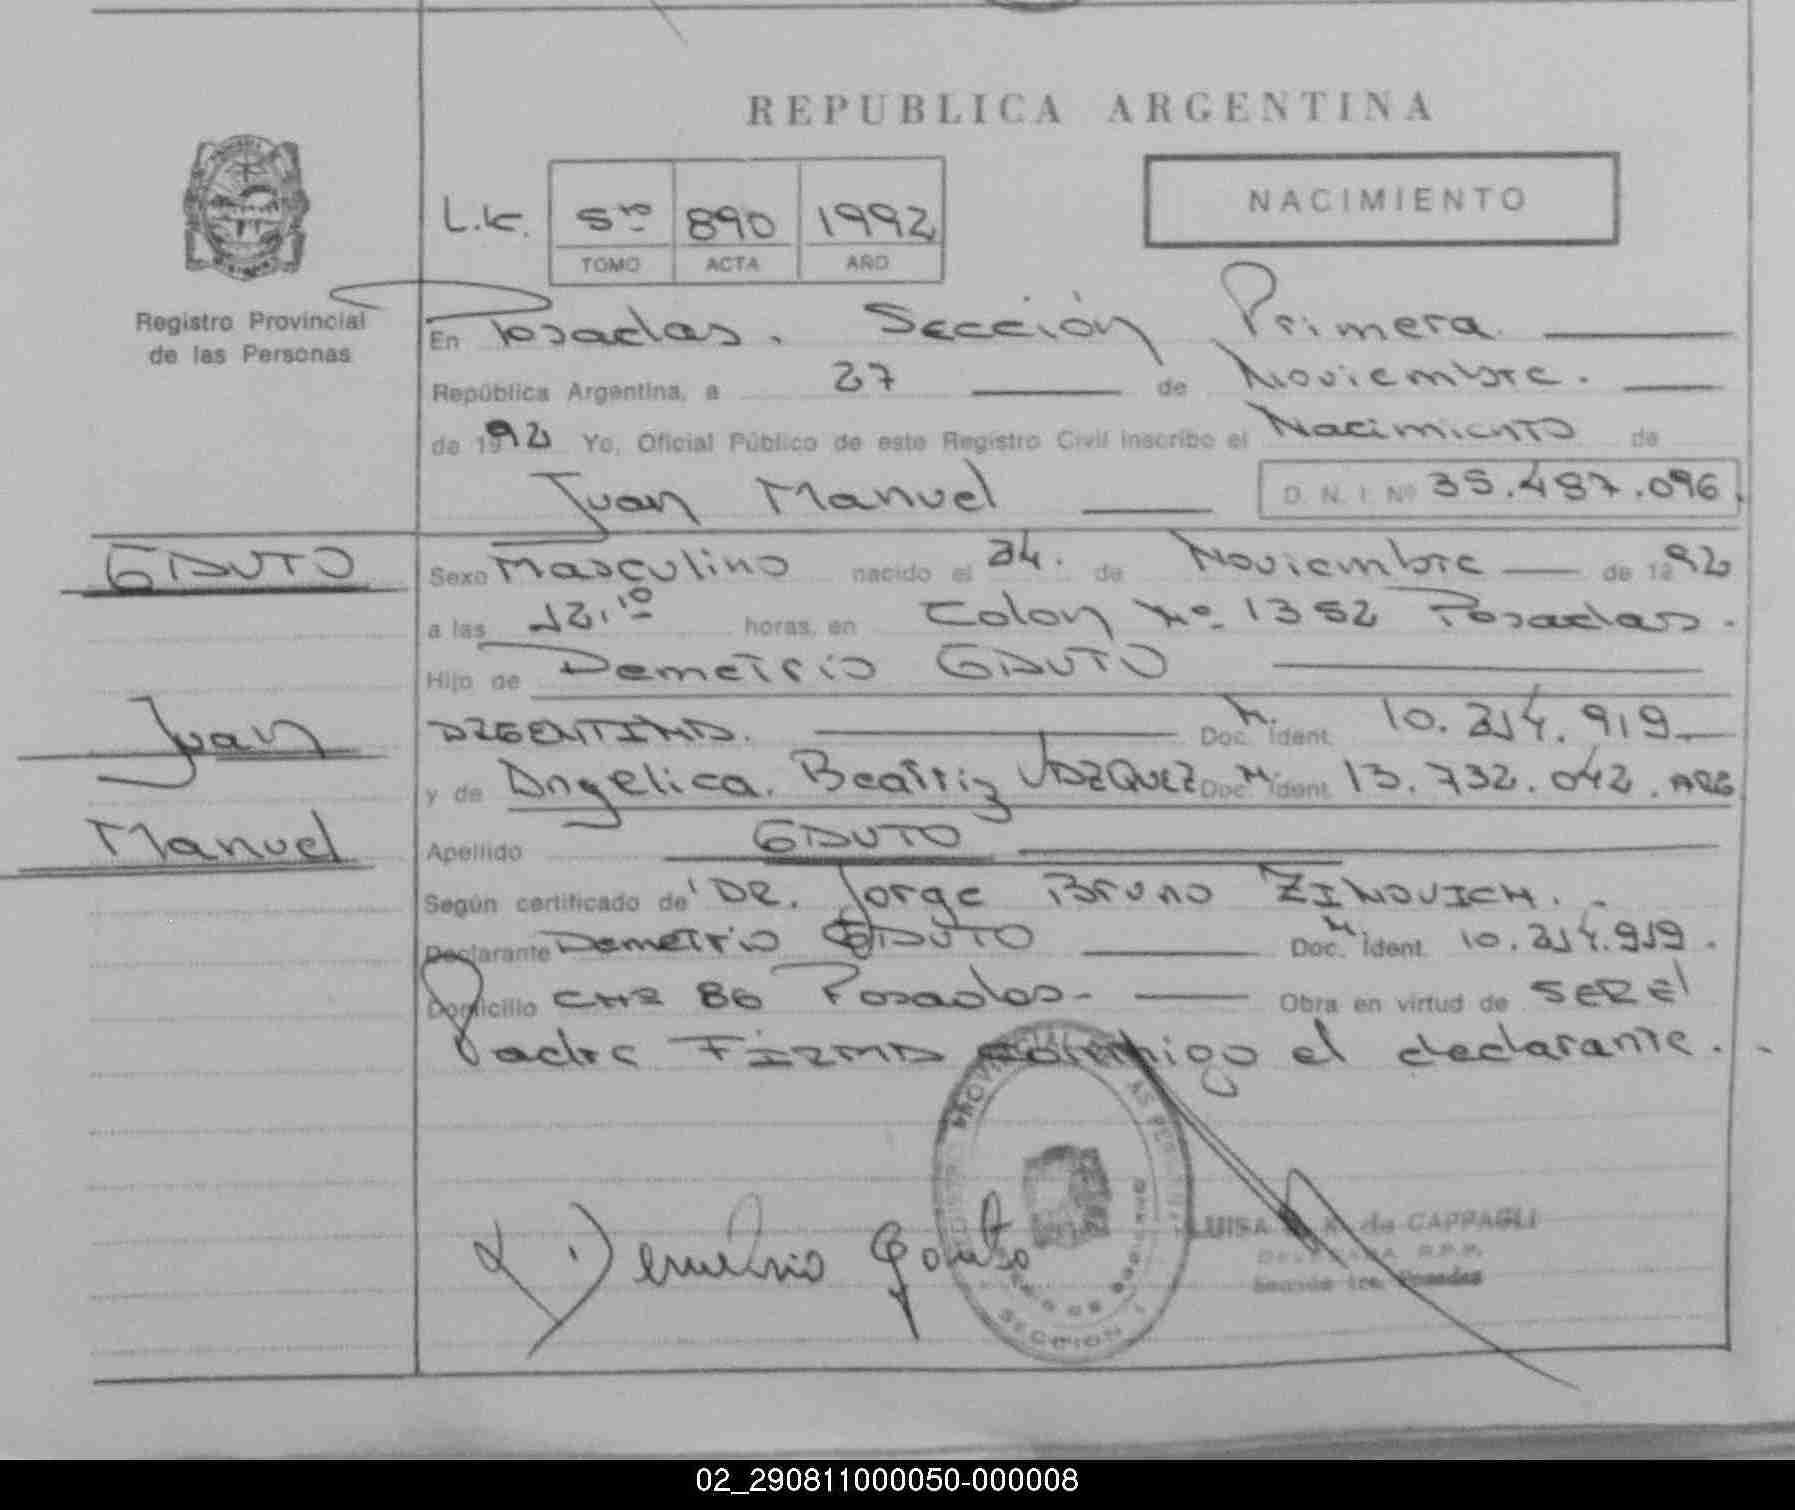 REPUBLICA ARGENTINA
NACIMIENTO
L.K. 5to 890 1992
TOMO ACTA AÑO
Registro Provincial
de las Personas
En Posadas. Sección Primera
República Argentina, a 27 de Noviembre.
de 1992 Yo, Oficial Público de este Registro Civil inscribo el Nacimiento de
Juan Manuel D. N. I. Nº 35.487.096
GAUTO
Sexo Masculino nacido el 24. de Noviembre de 1992
a las 12,10 horas, en Colon Nº 1352 Posadas.
Hijo de Demetrio GAUTO
Juan
ARGENTINA. Doc. M. Ident. 10.214.919
y de Angelica. Beatriz VAZQUEZ Doc. M. Ident. 13.732.042. ARG
Manuel
Apellido GAUTO
Según certificado de DR. Jorge Bruno ZINOVICH.
Declarante Demetrio GAUTO Doc. M. Ident. 10.214.919.
Domicilio CH2 86 Posadas- Obra en virtud de SER El
Padre FIRMA conmigo el declarante.
Demetrio Gauto
LUISA K. de CAPPAGLI
SECCION 1
02_290811000050-000008